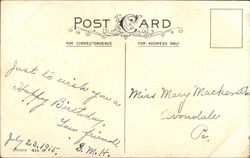 POST CARD
FOR CORRESPONDENCE
FOR ADDRESS ONLY
Just to wish you a
Happy Birthday.
Your friend
S. M. H.
July 23, 1915.
Miss Mary
Avondale
Pa.